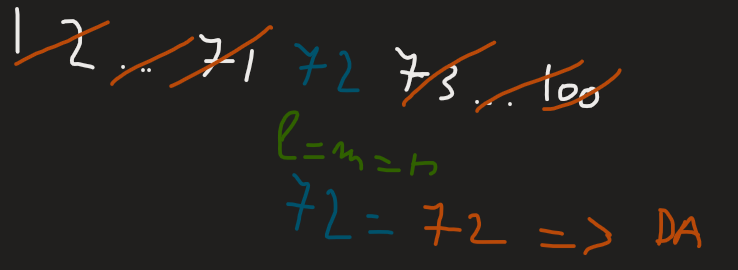 1 2 ... 71 72 73 ... 100
l = m = r
72 = 72 => DA